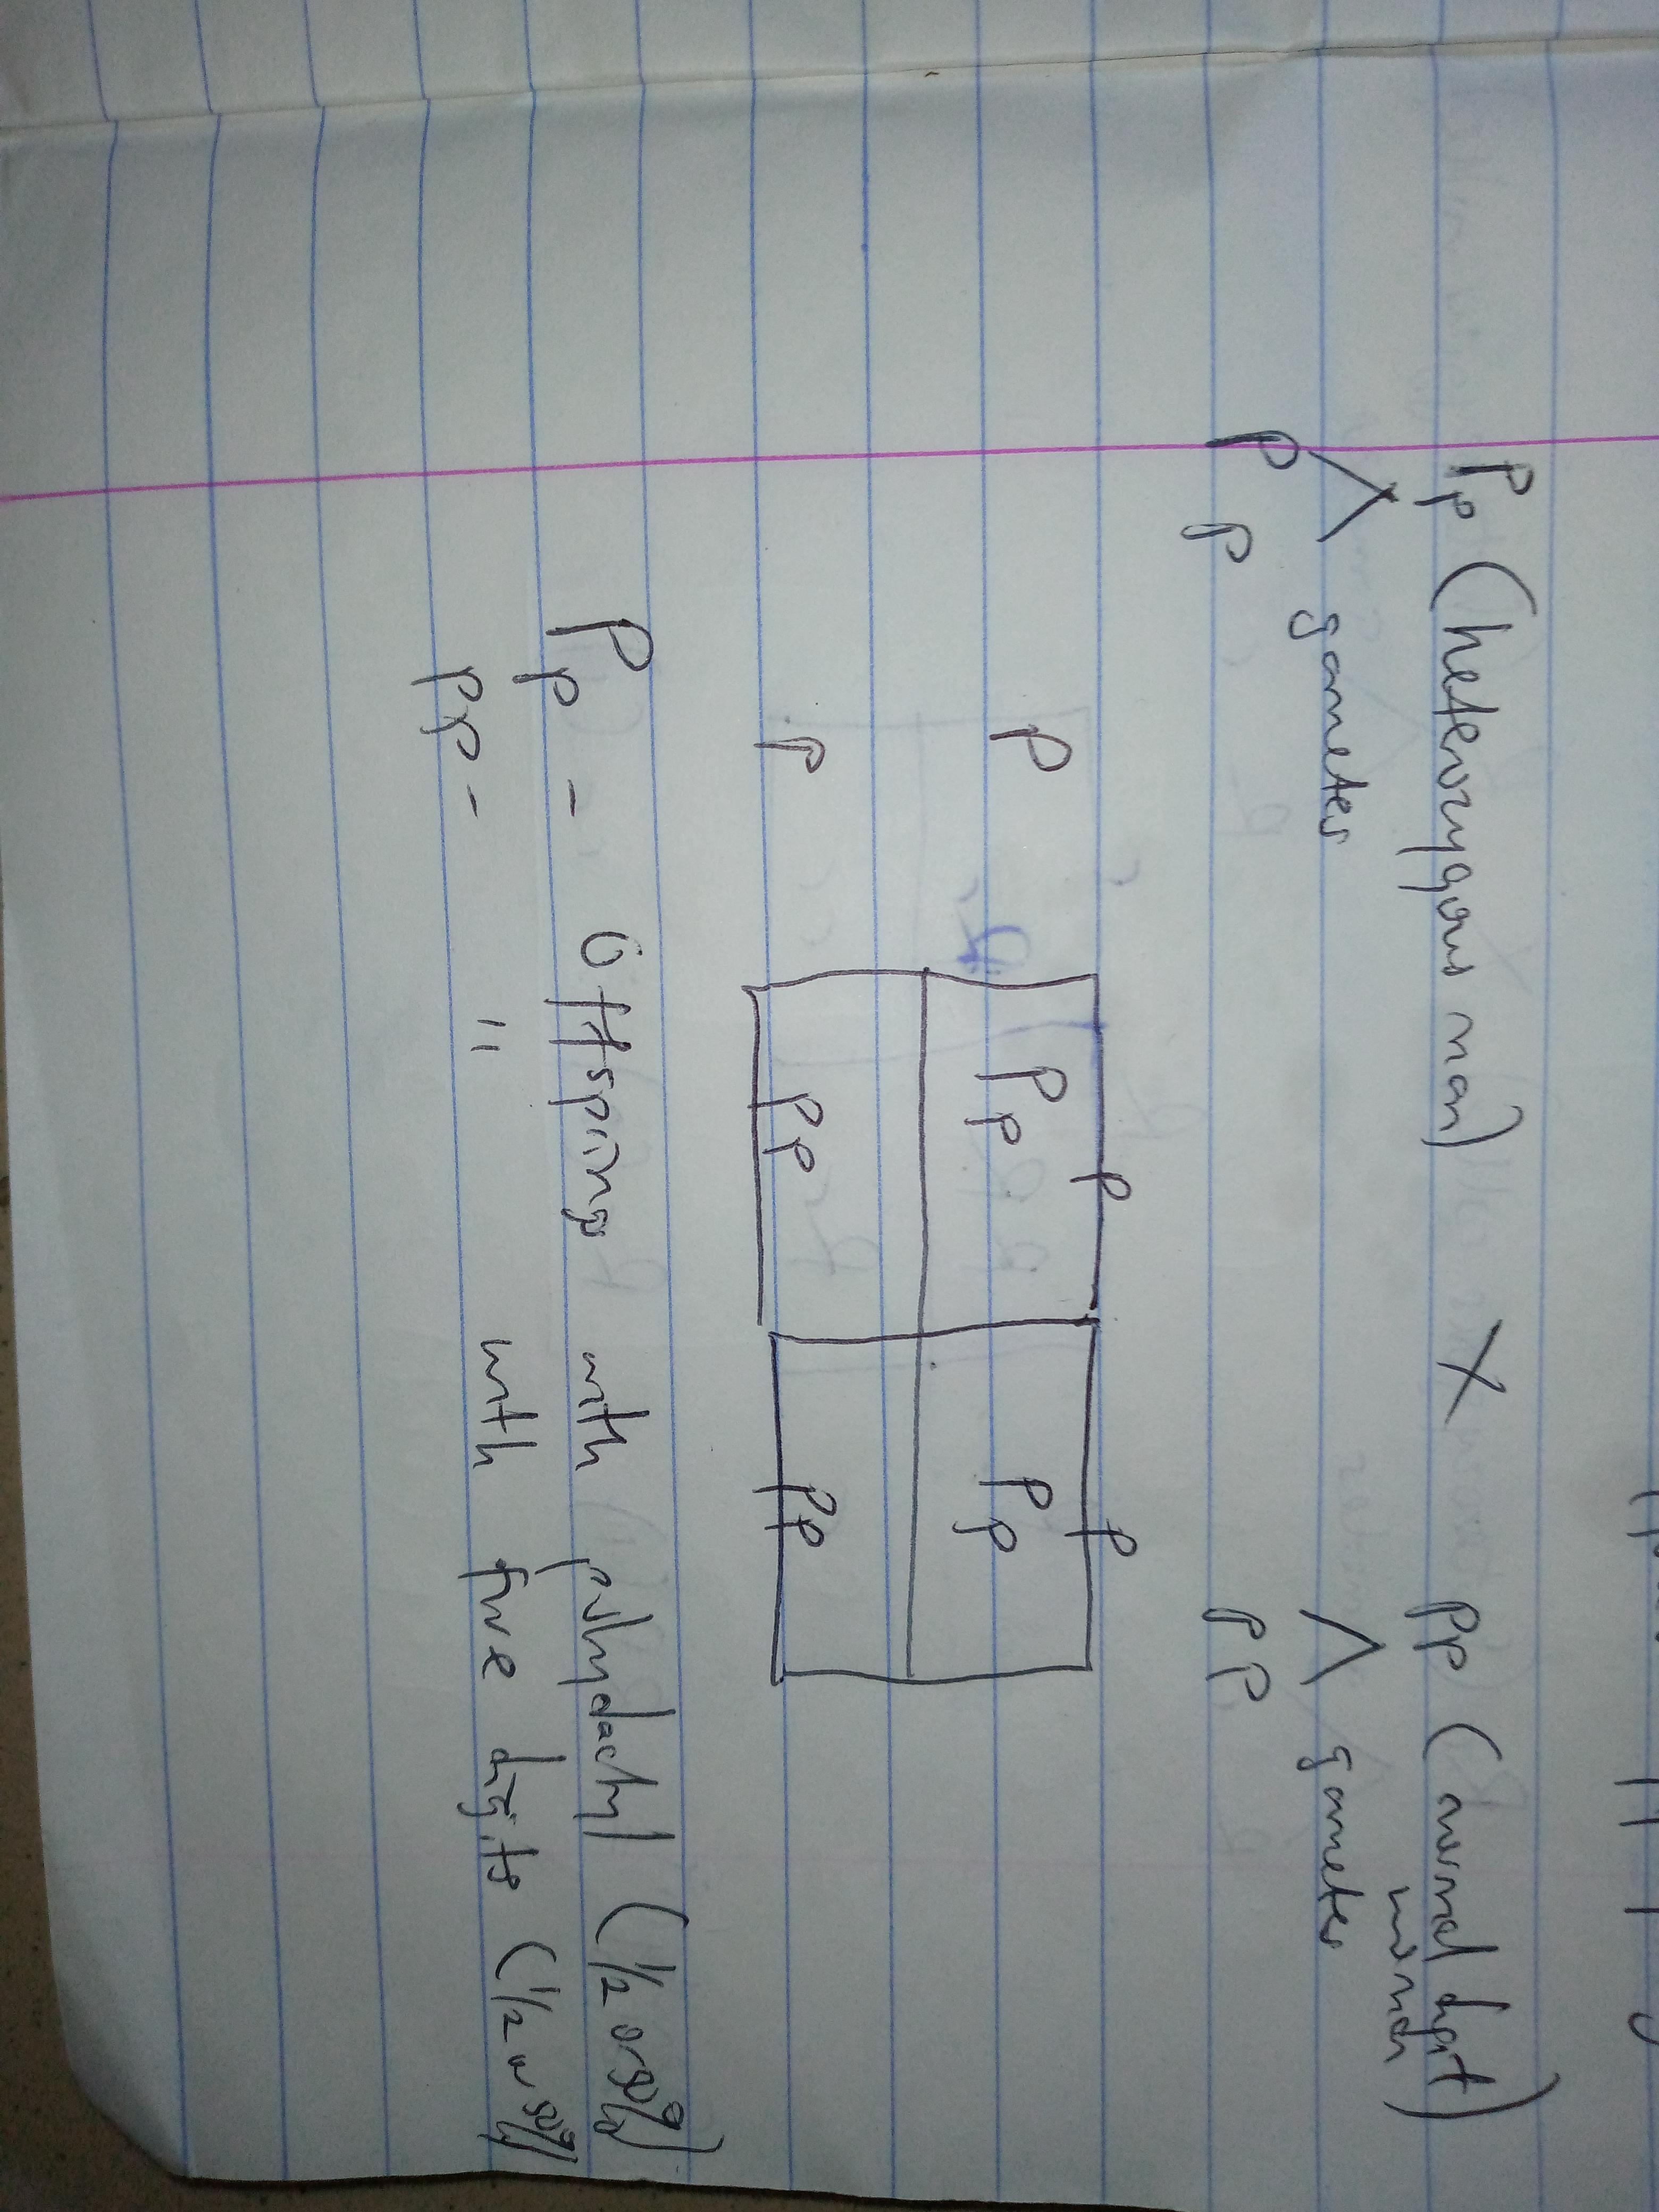 Pp (heterozygous man) X pp (normal digit
woman)
gametes gametes
P p p p
p p
P Pp Pp
p pp pp
Pp - Offsprings with polydactyl (1/2 or 50%)
pp - " with five digits (1/2 or 50%)